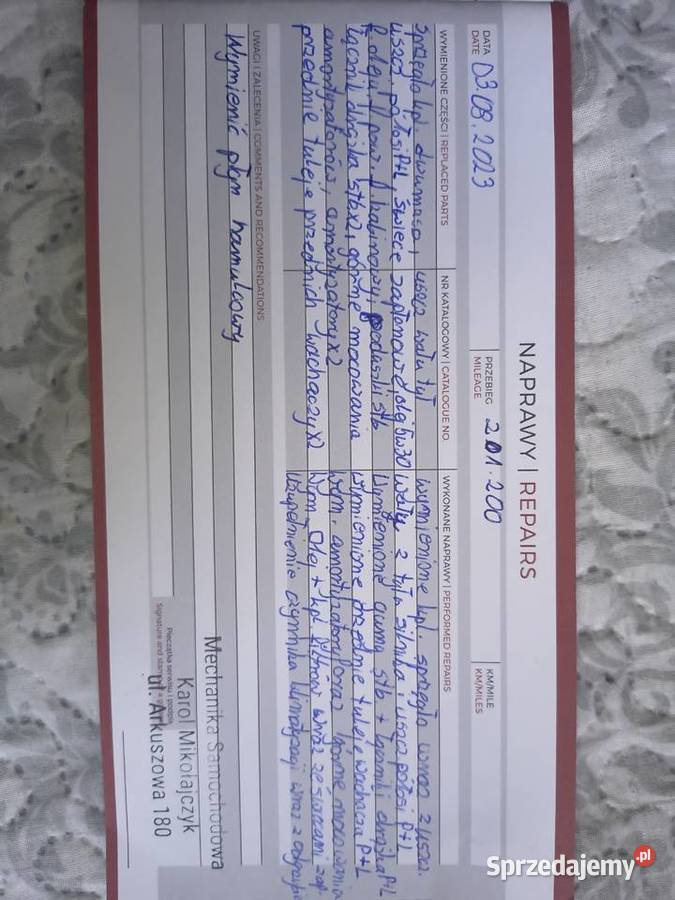 NAPRAWY | REPAIRS
DATA
DATE
03.08.2023
PRZEBIEG
MILEAGE
201.200
KM/MILE
KM/MILES
WYMIENIONE CZĘŚCI | REPLACED PARTS
NR KATALOGOWY | CATALOGUE NO.
WYKONANE NAPRAWY | PERFORMED REPAIRS
Sprzęgło kpl. dwumasa, uszcz. wału tył
uszcz. półosi P+L świece zapłonowe, olej 5w30
F. oleju, f. pow. f. kabinowy, poduszki stb
łączniki drążka stb x2, górne mocowania
amortyzatorów, amortyzatory x2
przednie tuleje przednich wachaczy x2
Wymienione kpl. sprzęgło wraz z uszcz.
wału z tyłu silnika i uszcz. półosi P+L
Wymienione gumy stb + łączniki drążka P+L
Wymienione przednie tuleje wachacza P+L
Wym. amortyzatory oraz górne mocowania
Wym. olej + kpl filtrów wraz ze świecami zap.
Uzupełnienie czynnika klimatyzacji wraz z
UWAGI I ZALECENIA | COMMENTS AND RECOMMENDATIONS
Wymienić płyn hamulcowy
Mechanika Samochodowa
Karol Mikołajczyk
ul. Arkuszowa 180
Pieczątka serwisu i podpis
Signature and stamp
Sprzedajemy.pl